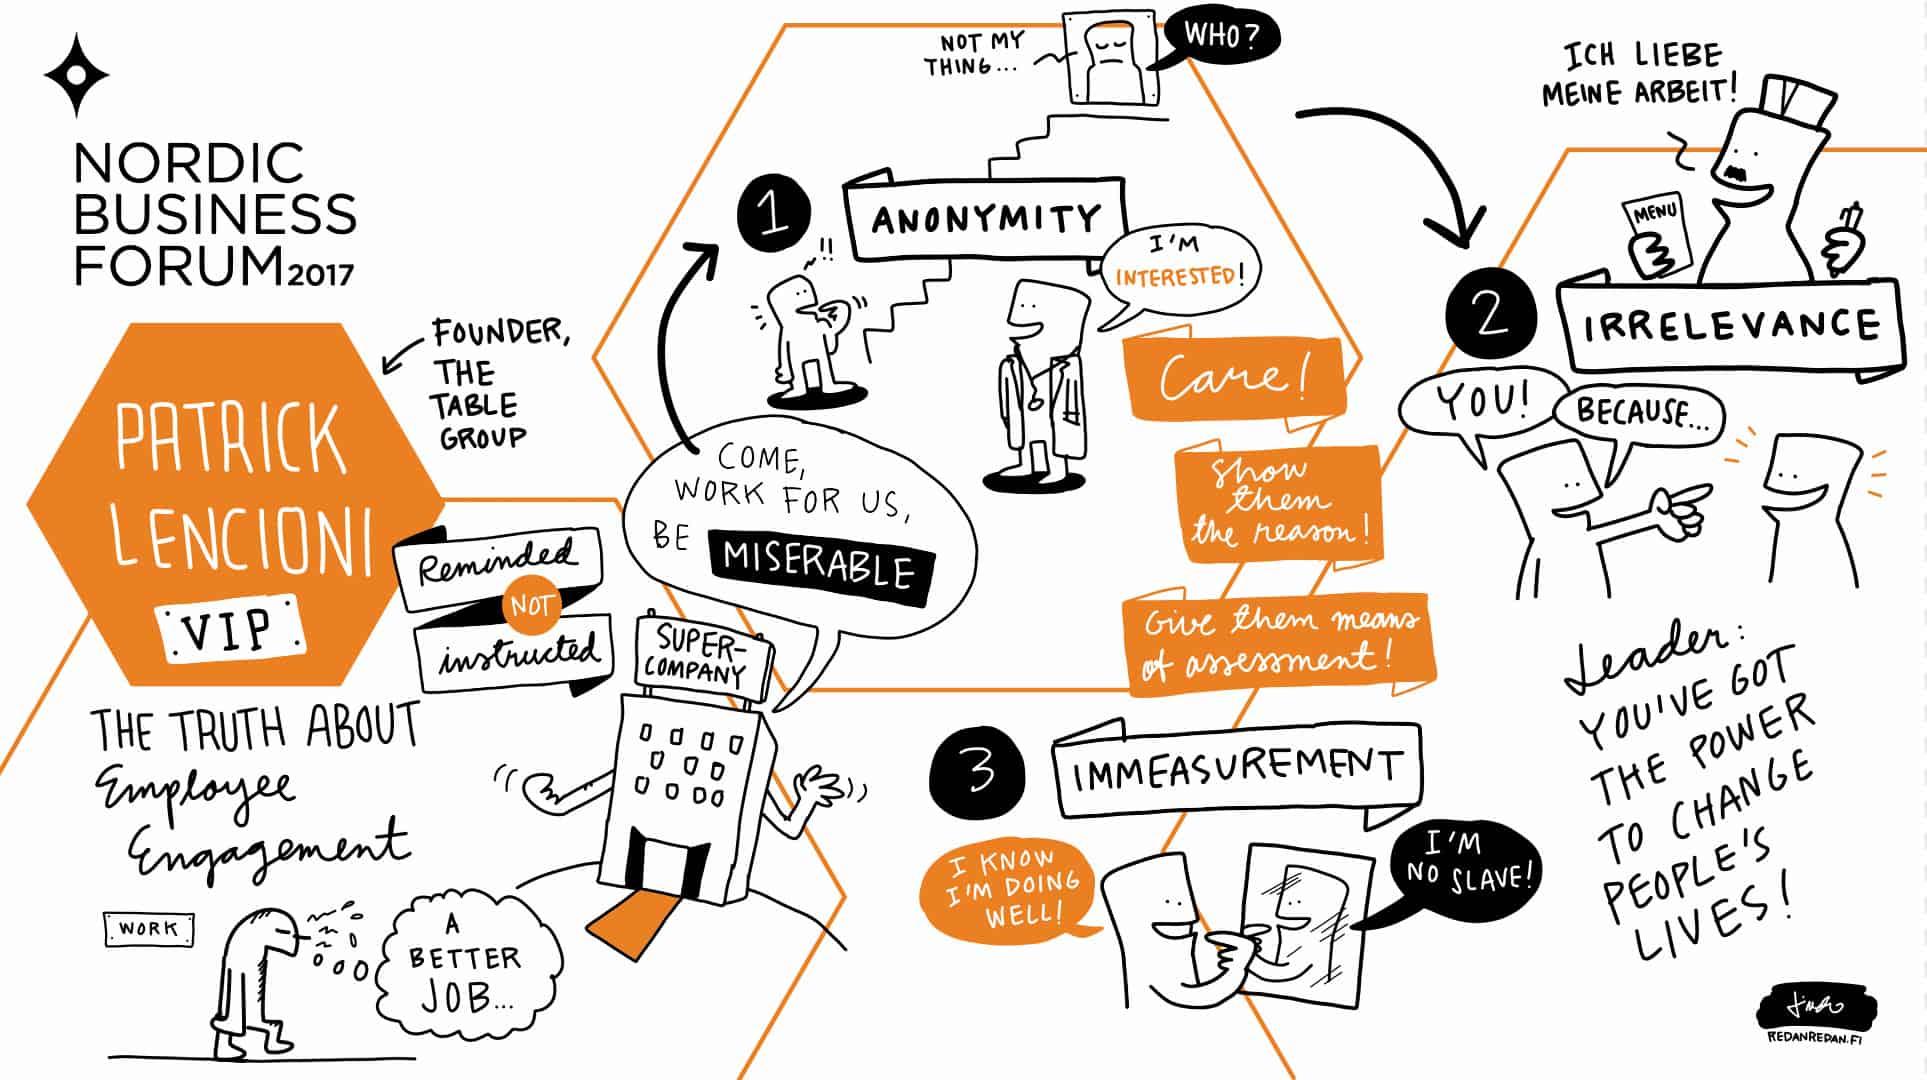 NORDIC
BUSINESS
FORUM 2017
PATRICK
LENCIONI
VIP
FOUNDER,
THE
TABLE
GROUP
Reminded
NOT
instructed
THE TRUTH ABOUT
Employee
Engagement
WORK
A
BETTER
JOB...
SUPER-
COMPANY
COME,
WORK FOR US,
BE MISERABLE
1
ANONYMITY
NOT MY
THING...
WHO?
!!
I'M
INTERESTED!
Care!
Show
them
the reason!
Give them means
of assessment!
ICH LIEBE
MEINE ARBEIT!
MENU
2
IRRELEVANCE
YOU!
BECAUSE...
3
IMMEASUREMENT
I KNOW
I'M DOING
WELL!
I'M
NO SLAVE!
Leader:
YOU'VE GOT
THE POWER
TO CHANGE
PEOPLE'S
LIVES!
REDANREDAN.FI